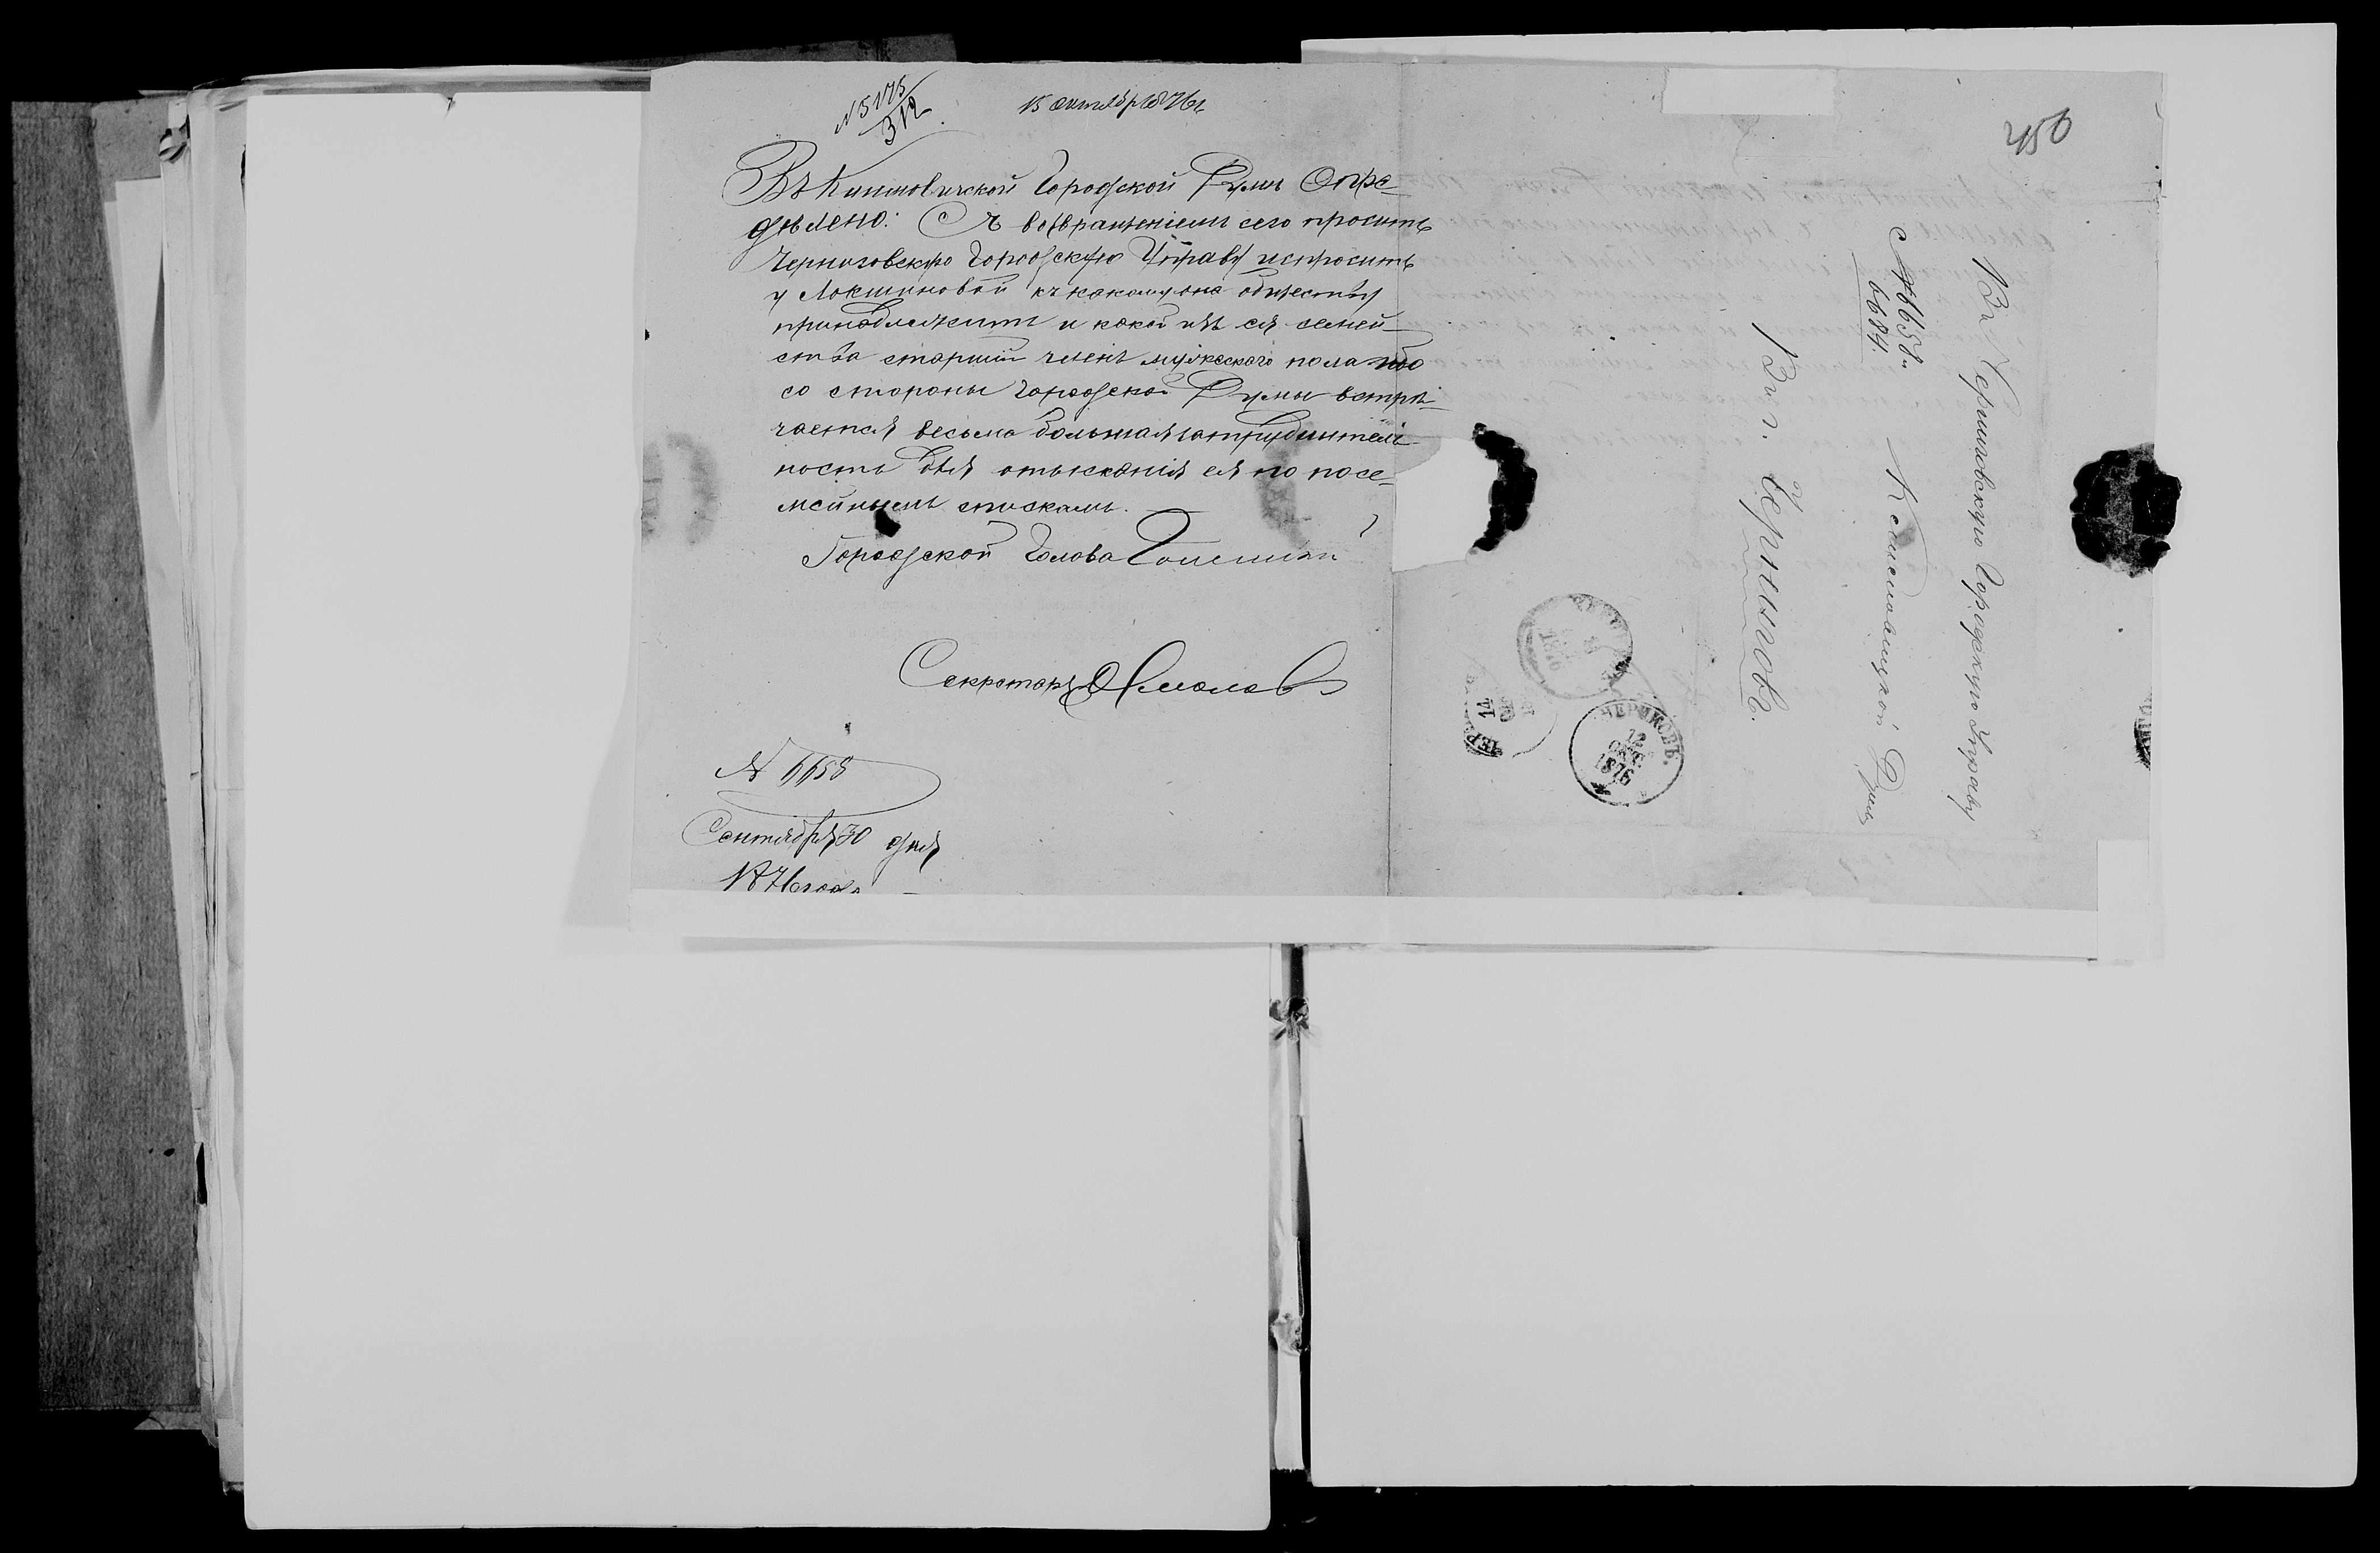 № 5175
312
15 октября 76 г.
Въ Климовичской Городской Думѣ Опре-
дѣлено: Съ возвращеніемъ сего просить
Черниговскую Городскую Управу испросить
у Локшиновой къ какому она обществу
принадлежитъ и какой изъ ея семей-
ства старшій членъ мужескаго пола ибо
со стороны городской Думы встрѣ-
чается весьма большая затруднитель-
ность для отысканія ея по посе-
мейнымъ спискамъ.
Городской Голова
Секретарь
№ 6658
Сентября 30 дня
1876 года
450
Въ Черниговскую Городскую Управу
Климовицкой Думы
№ 6658.
6684.
Въ г. Черниговъ.
ЧЕРИКОВЪ.
12
ОКТ.
1876
14